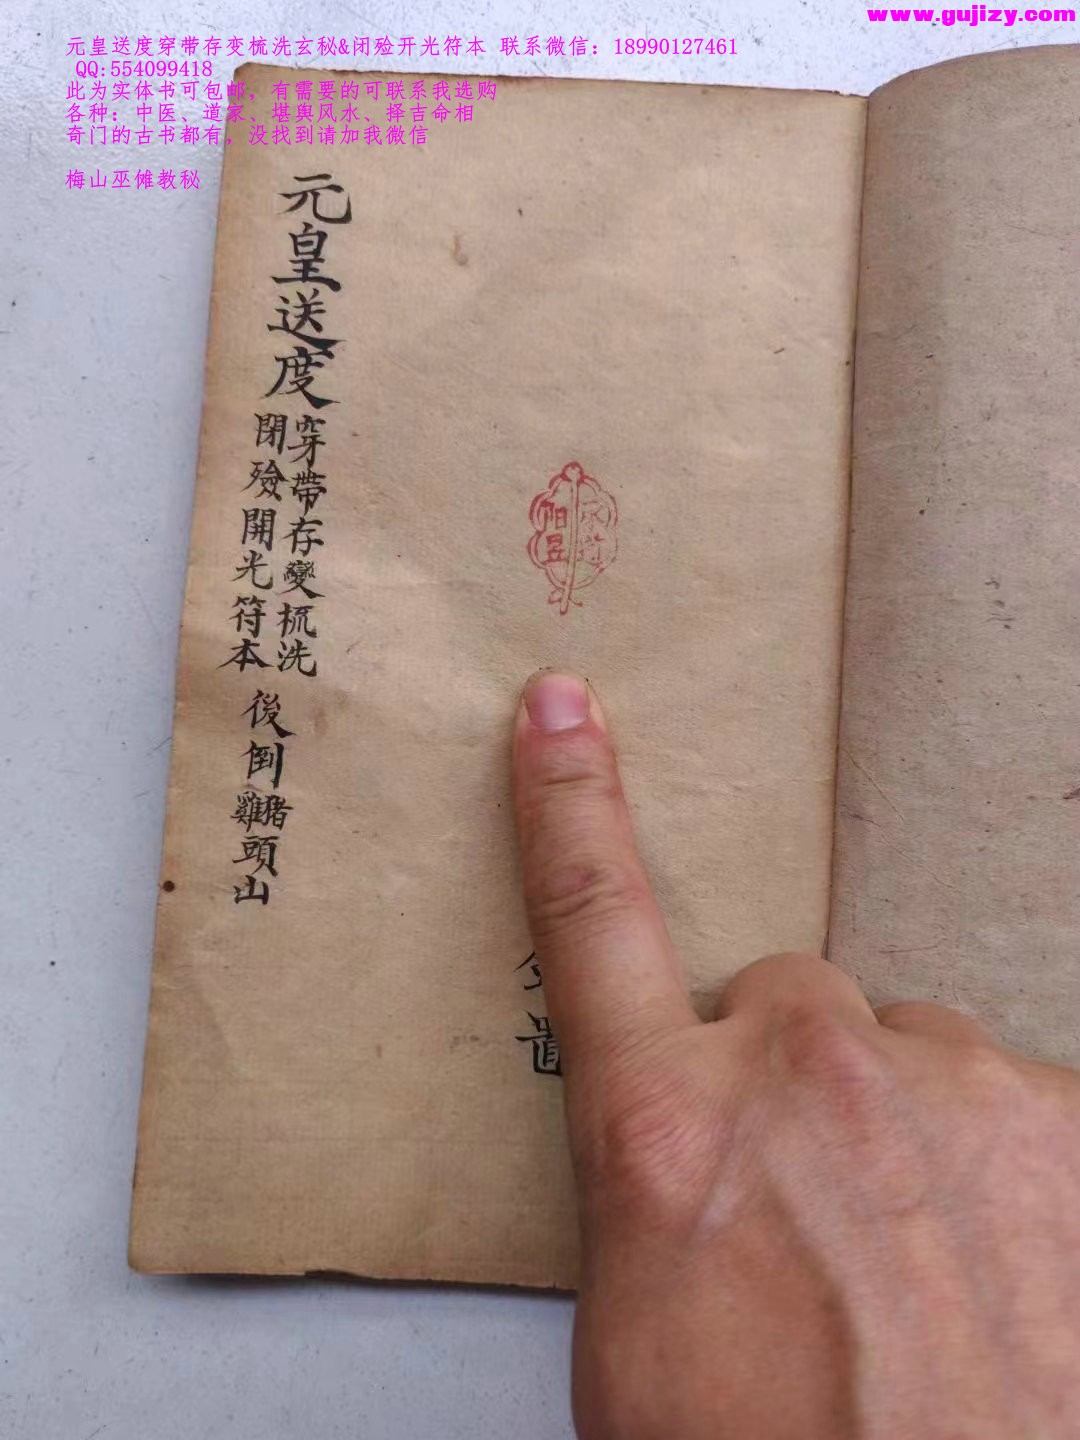 www.gujizy.com
元皇送度穿带存变梳洗玄秘&闭殓开光符本 联系微信：18990127461
QQ:554099418
此为实体书可包邮，有需要的可联系我选购
各种：中医、道家、堪舆风水、择吉命相
奇门的古书都有，没找到请加我微信
梅山巫傩教秘
元皇送度
穿帶存變梳洗
閉殮開光符本
後倒
豬
雞
頭山